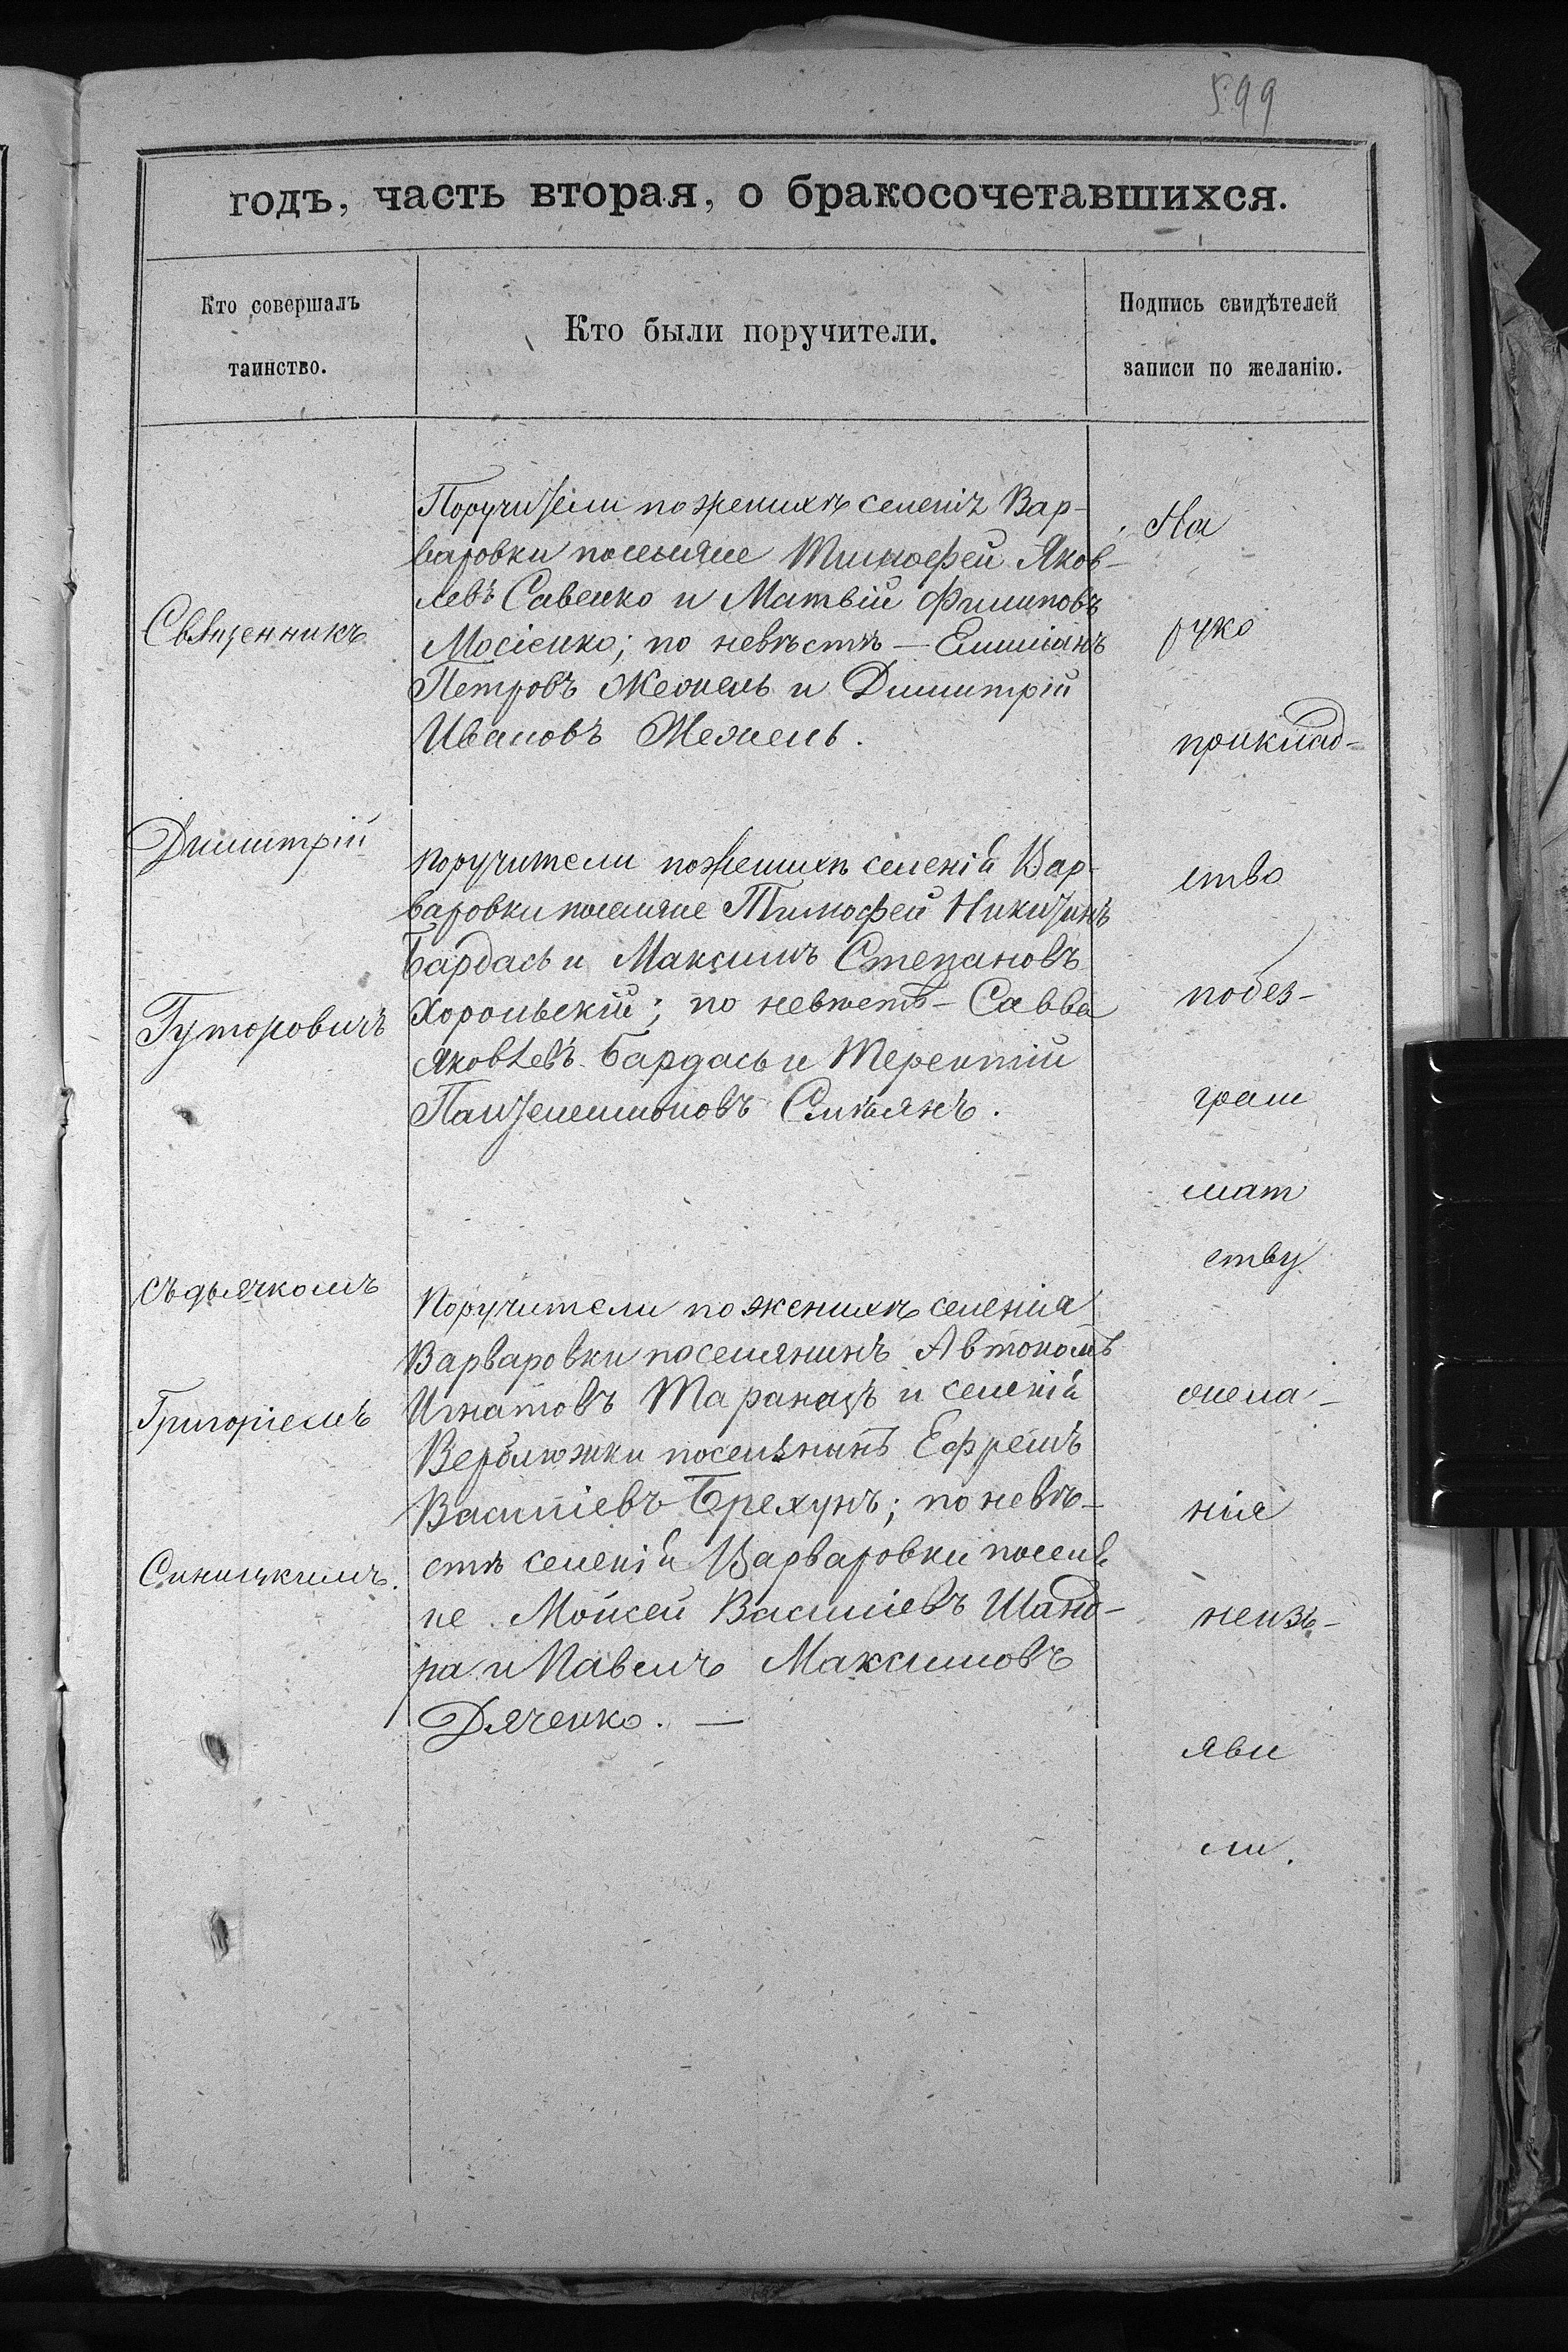 599
годъ, часть вторая, о бракосочетавшихся.
Кто совершалъ
таинство.
Кто были поручители.
Подпись свидѣтелей
записи по желанію.
Священникъ
Димитрій
Гуторовичъ
съ дьячкомъ
Григоріемъ
Синицкимъ.
Поручители по женихѣ селенія Вар-
варовки поселяне Тимофей Яков-
левъ Савенко и Матвій Филиповъ
Мосіенко; по невѣстѣ – Емиліанъ
Петровъ Жежель и Димитрій
Ивановъ Жежель.
Поручители по женихѣ селенія Вар-
варовки поселяне Тимофей Никитинъ
Бардась и Максимъ Степановъ
Хорольскій; по невѣстѣ – Савва
Яковлевъ Бардась и Терентій
Пантелеимоновъ
Поручители по женихѣ селенія
Варваровки поселянинъ Автономъ
Игнатовъ Таранецъ и селенія
Верблюжки поселянинъ Ефремъ
Василіевъ Брехунъ; по невѣ-
стѣ селенія Варваровки поселя
не Мойсей Василіевъ Шанд-
ра и Павелъ Максимовъ
Дяченко. —
На
руко
приклад-
ство
по без-
грам
мат
ству
жела-
нія
неизъ-
яви
ли.